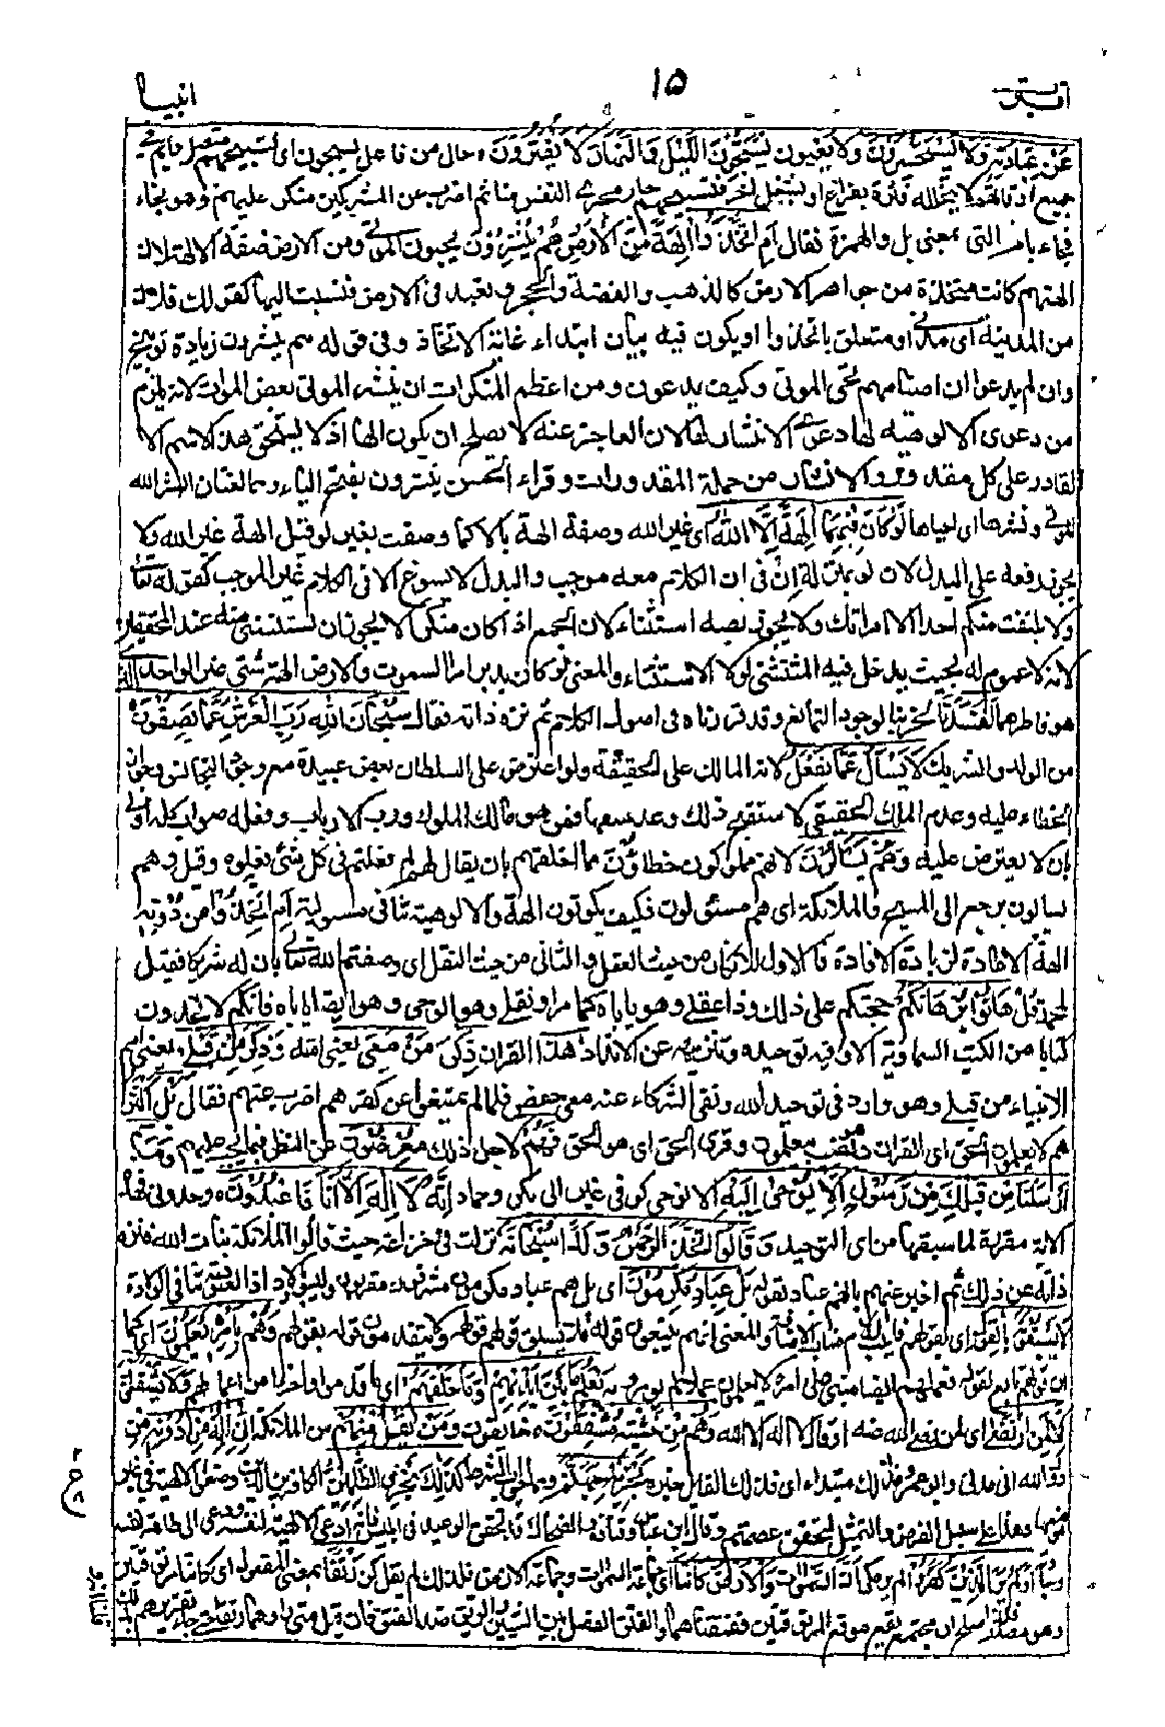 اقترب ١٥ انبيا
عَنْ عِبَادَتِهٖ وَلَا يَسْتَحْسِرُوْنَ وَلَا يَعْيَون يُسَبِّحُوْنَ اللَّيْلَ وَالنَّهَارَ لَا يَفْتُرُوْنَ حال من فاعل يسبحون اى تسبيحهم متصل دايم فى
جميع اوقاتهم لا يتخلله فترة بفراغ او بشغل اخر فتسبيحهم جار مجرى النفس منا ثم اضرب عن المشركين منكرا عليهم وهو بخاء
فجاء بام التى بمعنى بل والهمزة فقال اَمِ اتَّخَذُوْا اٰلِهَةً مِّنَ الْاَرْضِ هُمْ يُنْشِرُوْنَ يحيون الموتى ومن الارض صفة لالهة لان
الهتهم كانت متخذة من جواهر الارض كالذهب والفضة والحجر وتعبد فى الارض فنسبت اليها كقولك فلان
من المدينة اى مدنى او متعلق باتخذوا او يكون فيه بيان ابتداء غاية الاتخاذ وفى قوله هم ينشرون زيادة توبيخ
وان لم يدعوا ان اصنامهم تحيى الموتى وكيف يدعون ومن اعظم المنكرات ان ينشر الموتى بعض الموات لانه يلزم
من دعوى الالوهية لها دعوى الانشار لها لان العاجز عنه لا يصلح ان يكون الها اذ لا يستحق هذا الاسم الا
القادر على كل مقدور والانشار من جملة المقدورات وقراء الحسن ينشرون بفتح الياء وهما لغتان انشر الله
الموتى ونشرها اى احياها لَوْ كَانَ فِيْهِمَا اٰلِهَةٌ اِلَّا اللّٰهُ اى غير الله وصفة الهة بالا كما وصفت بغير لو قيل الهة غير الله ولا
يجوز رفعه على البدل لان لو بمنزلة اِنْ فى ان الكلام معه موجب والبدل لا يسوغ الا فى الكلام غير الموجب كقوله تعالى
ولا يلتفت منكم احد الا امراتك ولا يجوز نصبه استثناء لان الجمع اذا كان منكرا لا يجوز ان يستثنى منه عند المحققين
لانه لا عموم له بحيث يدخل فيه المستثنى لولا الاستثناء والمعنى لو كان يدبر امر السموت والارض الهة شتى غير الواحد الذى
هو فاطرهما لَفَسَدَتَا لخربتا لوجود التمانع وقد قررناه فى اصول الكلام ثم نزه ذاته فقال سُبْحَانَ اللّٰهِ رَبِّ الْعَرْشِ عَمَّا يَصِفُوْنَ
من الولد والشريك لَا يُسْئَلُ عَمَّا يَفْعَلُ لانه المالك على الحقيقة ولو اعترض على السلطان بعض عبيده مع وجود التجانس وجواز
الخطاء عليه وعدم الملك الحقيقى لاستقبح ذلك وعد سفها فمن هو مالك الملوك ورب الارباب وفعله صواب كله اولى
بان لا يعترض عليه وَهُمْ يُسْئَلُوْنَ لانهم مملوكون خطاؤن فما اخلقهم بان يقال لهم لم فعلتم فى كل شئ فعلوه وقيل وهم
يسالون يرجع الى المسيح والملائكة اى هم مسئولون فكيف يكونون الهة والالوهية تنافى المسئولية اَمِ اتَّخَذُوْا مِنْ دُوْنِهٖ
الهة الاعادة لزيادة الافادة فالاول للانكار من حيث العقل والثانى من حيث النقل اى وصفتم الله تعالى بان له شريكا فقيل
لمحمد قُلْ هَاتُوْا بُرْهَانَكُمْ حجتكم على ذلك وذا عقلى وهو ياباه كما مر او نقلى وهو الوحى وهو ايضا ياباه فانكم لا تجدون
كتابا من الكتب السماوية الا وفيه توحيده وتنزيهه عن الانداد هٰذَا القران ذِكْرُ مَنْ مَّعِىَ يعنى امته وَذِكْرُ مَنْ قَبْلِىْ يعنى امم
الانبياء من قبلى وهو وارد فى توحيد الله ونفى الشركاء عنه معى حفص فلما لم يمتنعوا عن كفرهم اضرب عنهم فقال بَلْ اَكْثَرُ
هم لا يعلمون الحق اى القران وهو نصب بيعلمون وقرئ الحق اى هو الحق فَهُمْ لاجل ذلك مُّعْرِضُوْنَ عن النظر فيما يجب عليهم وَمَا
اَرْسَلْنَا مِنْ قَبْلِكَ مِنْ رَّسُوْلٍ اِلَّا يُوْحٰى اِلَيْهِ الا نوحى كوفى غير ابى بكر وحماد اَنَّهٗ لَا اِلٰهَ اِلَّا اَنَا فَاعْبُدُوْنِ وحدونى فهذه
الاية مقررة لما سبقها من اى التوحيد وَقَالُوا اتَّخَذَ الرَّحْمٰنُ وَلَدًا سُبْحَانَهٗ نزلت فى خزاعة حيث قالوا الملائكة بنات الله فنزه
ذاته عن ذلك ثم اخبر عنهم بانهم عباد بقوله بَلْ عِبَادٌ مُّكْرَمُوْنَ اى بل هم عباد مكرمون مشرفون مقربون وليسوا باولاد اذ العبودية تنافى الولادة
لَا يَسْبِقُوْنَهٗ بِالْقَوْلِ اى بقولهم فانيب اللام مناب الاضافة والمعنى انهم يتبعون قوله فلا يسبق قولهم قوله ولا يتقدمون قوله بقولهم وَهُمْ بِاَمْرِهٖ يَعْمَلُوْنَ اى كما
ان قولهم تابع لقوله فعملهم ايضا مبنى على امره لا يعملون عملا لم يومروا به يَعْلَمُ مَا بَيْنَ اَيْدِيْهِمْ وَمَا خَلْفَهُمْ اى ما قدموا واخروا من اعمالهم وَلَا يَشْفَعُوْنَ
اِلَّا لِمَنِ ارْتَضٰى اى لمن رضى الله عنه او قال لا اله الا الله وَهُمْ مِّنْ خَشْيَتِهٖ مُشْفِقُوْنَ خائفون وَمَنْ يَّقُلْ مِنْهُمْ من الملائكة اِنِّىْ اِلٰهٌ مِّنْ دُوْنِهٖ من
دون الله انى مدنى وابو عمرو فَذٰلِكَ مبتداء اى فذلك القائل خبره نَجْزِيْهِ جَهَنَّمَ وهو جواب الشرط كَذٰلِكَ نَجْزِى الظّٰلِمِيْنَ الكافرين الذين وضعوا الالهية فى غير
موضعها وهذا على سبيل الفرض والتمثيل لتحقق عصمتهم وقال ابن عباس وقتادة والضحاك قد تحقق الوعيد فى ابليس فانه ادعى الالهية لنفسه ودعى الى طاعة نفسه
وعبادته اَوَلَمْ يَرَ الَّذِيْنَ كَفَرُوْا الم ير مكى اَنَّ السَّمٰوٰتِ وَالْاَرْضَ كَانَتَا اى جماعة السموات وجماعة الارض فلذلك لم يقل كن رَتْقًا بمعنى المفعول اى كانتا مرتوقتين
وهو مصدر فلذا صلح ان يقع موقع المرتوقتين فَفَتَقْنَاهُمَا والفتق الفصل بين الشيئين والرتق ضد الفتق فان قيل متى راوهما رتقا حتى جاء تقريرهم بذلك